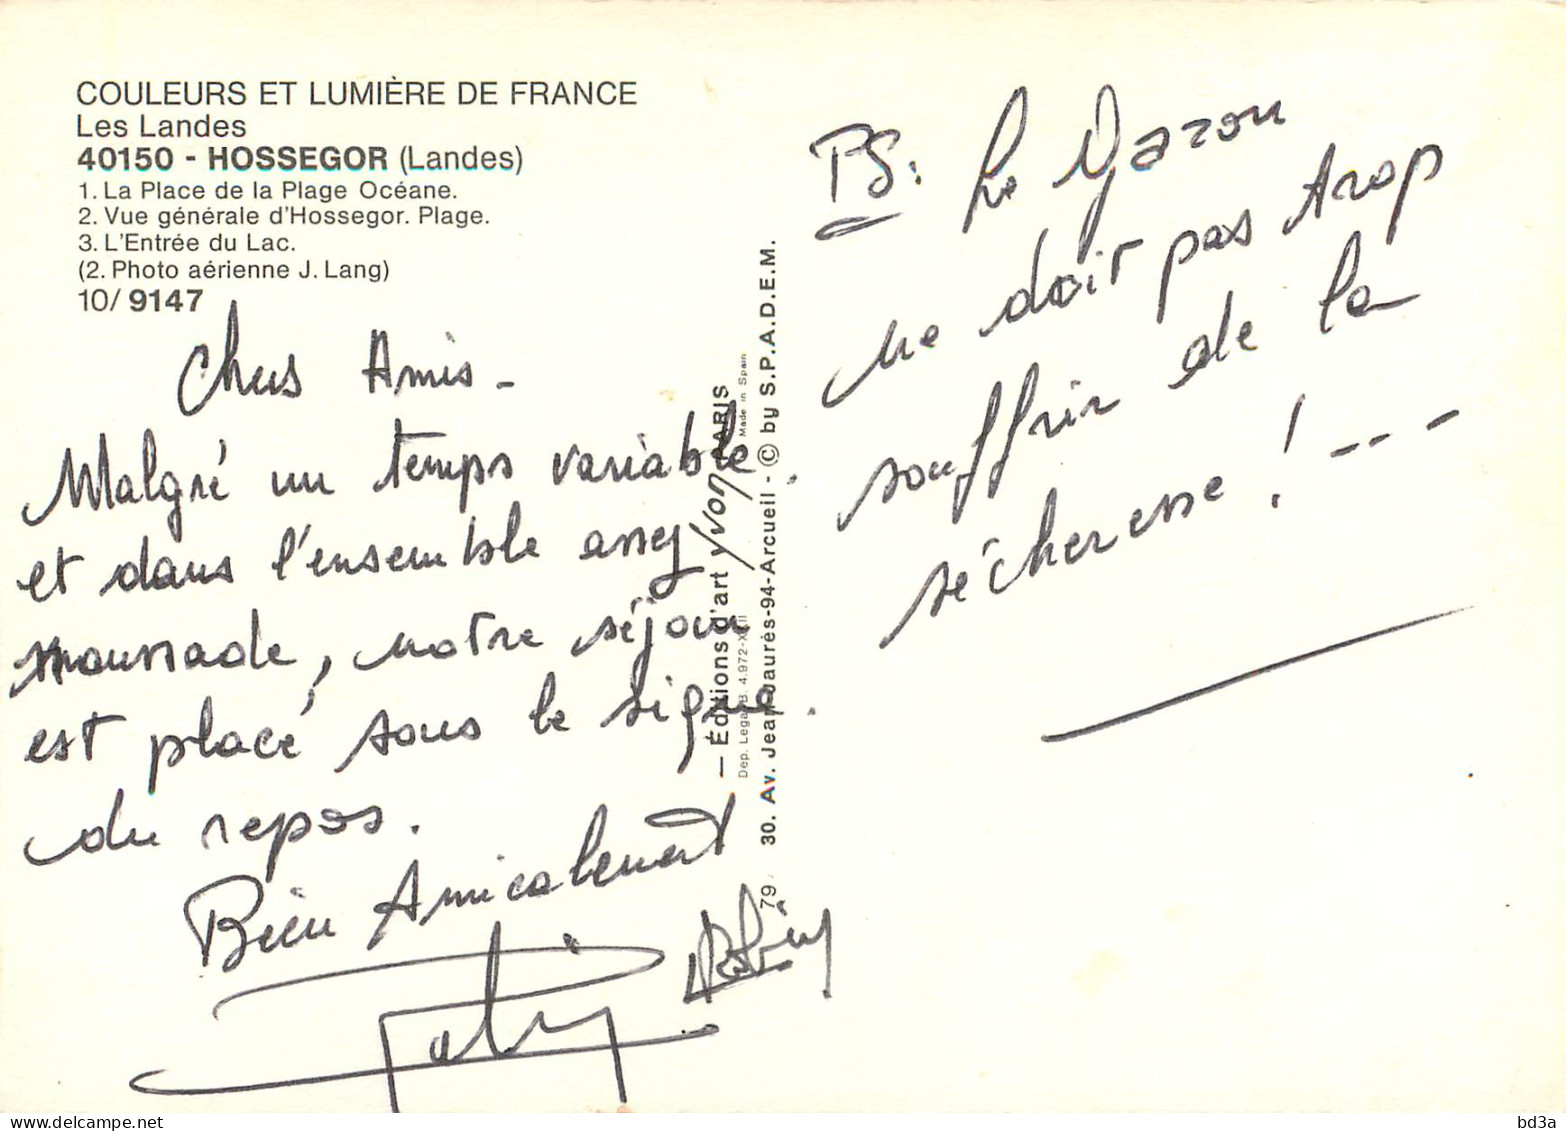 COULEURS ET LUMIÈRE DE FRANCE
Les Landes
40150 - HOSSEGOR (Landes)
1. La Place de la Plage Océane.
2. Vue générale d'Hossegor. Plage.
3. L'Entrée du Lac.
(2. Photo aérienne J. Lang)
10/ 9147
Chers Amis -
Malgré un temps variable
et dans l'ensemble assez
maussade, notre séjour
est placé sous le signe
du repos.
Bien Amicalement
— Éditions d'art yvon PARIS
Made in Spain
Dep. Legal B. 4.972-XXII
30. Av. Jean-Jaurès-94-Arcueil - © by S.P.A.D.E.M.
79
PS: Le Gazon
ne doit pas trop
souffrir de la
sécheresse! ---
bd3a